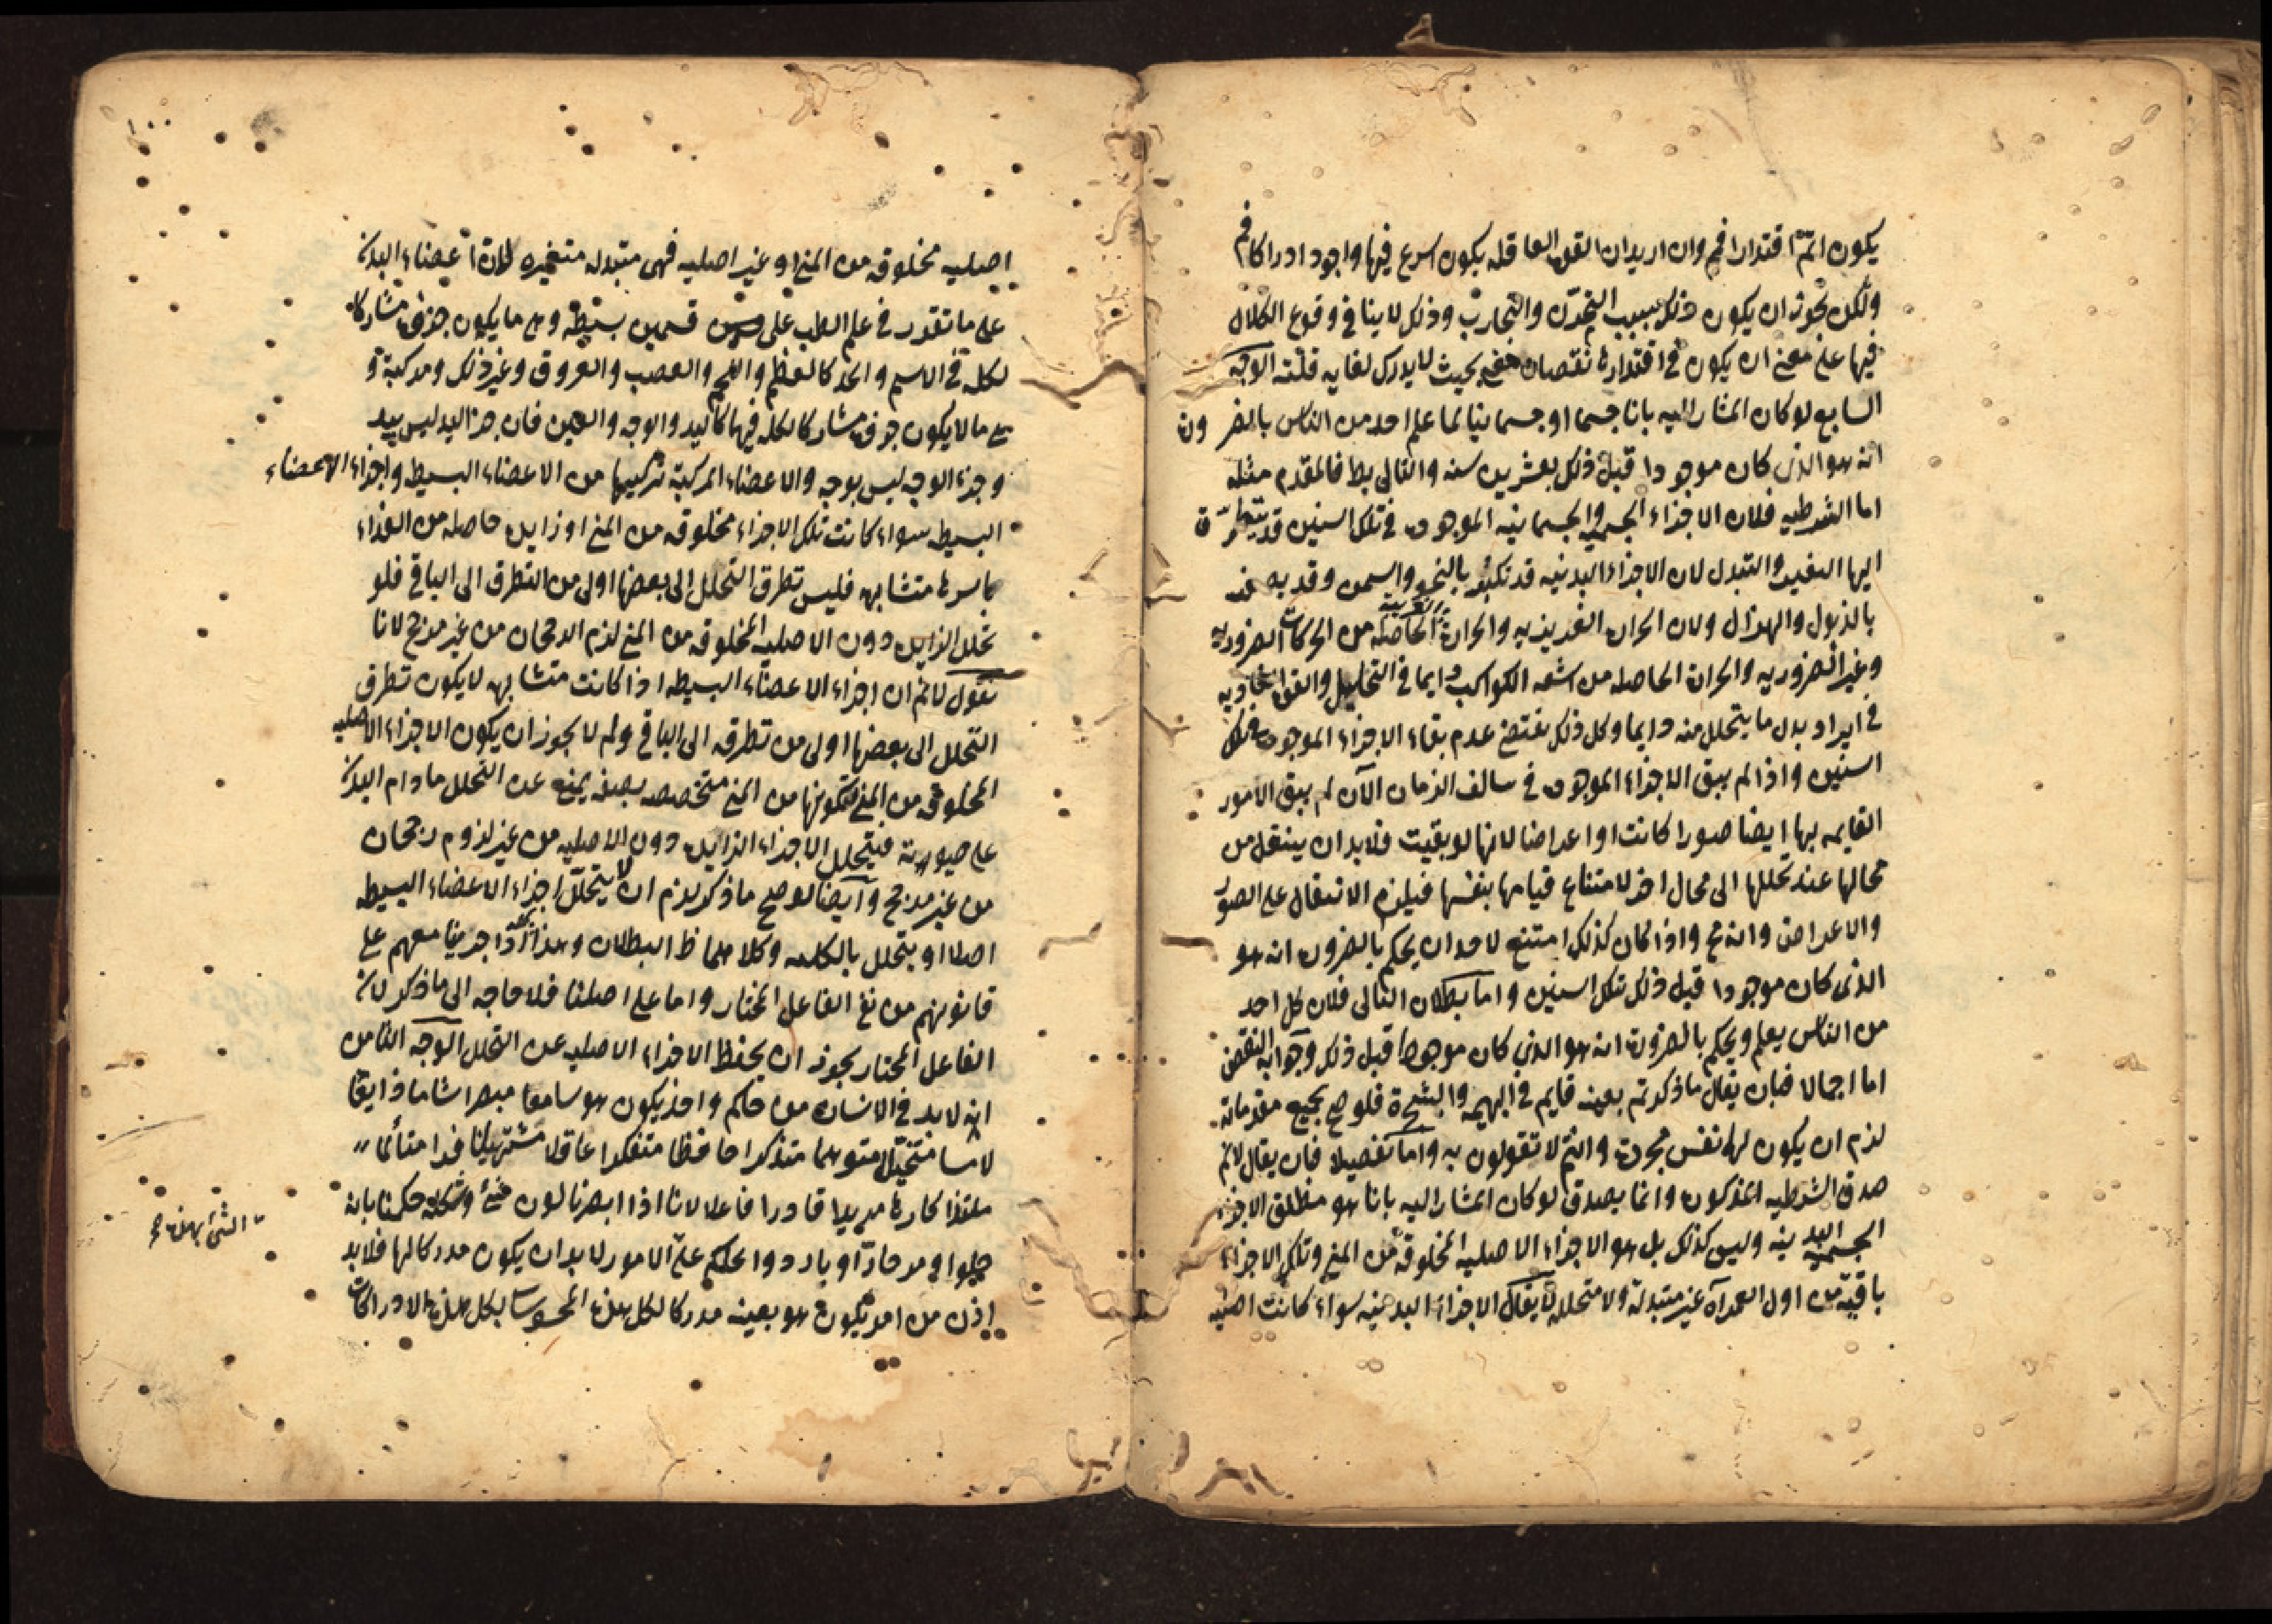 يكون اتمّ اقتدارا فم وان اريد ان القوة العاقله يكون اسرع فيها واجود ادراكا فم
ولكن يجوز ان يكون ذلك بسبب التمرّن والتجارب وذلك لا ينافي وقوع الكلال
فيها على معنى ان يكون في اقتدارها نقصان خفي بحيث لا يدرك لغايه قلّته الوجه
السابع لو كان المشار اليه بانا جسما او جسمانيا لما علم احد من الناس بالضرورة
انه هو الذى كان موجودا قبل ذلك بعشرين سنه والتالى بط فالمقدم مثله
اما الشرطيه فلان الاجزاء الجسمية والجسمانيه الموجودة في تلك السنين قد يتطرّق
اليها التغير والتبدل لان الاجزاء البدنيه قد تكثر بالنمو والسمن وقد
بالذبول والهزال ولان الحرارة الغريزيه والحرارة الغريبة الحاصلة من الحركات الضروريه
وغير الضروريه والحرارة الحاصله من اشعه الكواكب دايما في التحليل والقوة الغاذيه
في ايراد بدل ما يتحلل منه دايما وكل ذلك يقتضى عدم بقاء الاجزاء الموجودة في تلك
السنين واذا لم يبق الاجزاء الموجودة في سالف الزمان الآن لم يبق الامور
القايمه بها ايضا صورا كانت او اعراضا لانها لو بقيت فلابد ان ينتقل من
محالها عند تحللها الى محال اخر لامتناع قيامها بنفسها فيلزم الانتقال على الصور
والاعراض وانه مح واذا كان كذلك امتنع لاحد ان يحكم بالضرورة انه هو
الذى كان موجودا قبل ذلك تلك السنين واما بطلان التالى فلان كل احد
من الناس يعلم ويحكم بالضرورة انه هو الذى كان موجودا قبل ذلك وجوابه النقض
اما اجمالا فبان يقال ما ذكرتم بعينه قايم في البهيمه والشجرة فلو صح بجميع مقدماته
لزم ان يكون لها نفس مجردة وانتم لا تقولون به واما تفصيلا فان يقال لانم
صدق الشرطيه المذكورة وانما يصدق لو كان المشار اليه بانا هو مطلق الاجزاء
الجسمية البدنيه وليس كذلك بل هو الاجزاء الاصليه المخلوقة من المنى وتلك الاجزاء
باقية من اول العمر آه غير متبدلة ولا متحللة لا يقال الاجزاء البدنيه سواء كانت اصليه
اصليه مخلوقه من المنى او غير اصليه فهى متبدله متغيره لان اعضاء البدن
على ما تقرر في علم الطب على قسمين بسيطه وهى ما يكون جزؤه مشاركا
لكله في الاسم والحد كالعظم واللحم والعصب والعروق وغير ذلك ومركبة و
هى ما لا يكون جزؤه مشاركا لكله فيها كاليد والوجه والعين فان جزء اليد ليس بيد
وجزء الوجه ليس بوجه والاعضاء المركبة تركيبها من الاعضاء البسيطه واجزاء الاعضاء
البسيطه سواء كانت تلك الاجزاء مخلوقه من المنى او زايدة حاصله من الغذاء
باسرها متشابهه فليس تطرق التحلل الى بعضها اولى من التطرق الى الباقى فلو
تحلل الزايدة دون الاصليه المخلوقه من المنى لزم الرجحان من غير مرجح لانا
نقول لانم ان اجزاء الاعضاء البسيطه اذا كانت متشابهه لا يكون تطرق
التحلل الى بعضها اولى من تطرقه الى الباقى ولم لا يجوز ان يكون الاجزاء الاصليه
المخلوقه من المنى لتكونها من المنى متخصصه بصفه يمنع عن التحلل ما دام البدن
على صورته فيتحلل الاجزاء الزايدة دون الاصليه من غير لزوم رجحان
من غير مرجح وايضا لو صح ما ذكر يلزم ان لا يتحلل اجزاء الاعضاء البسيطه
اصلا او يتحلل بالكليه وكلاهما ظ البطلان وهذا اذا جرينا معهم على
قانونهم من نفى الفاعل المختار واما على اصلنا فلا حاجه الى ما ذكر لان
الفاعل المختار يجوز ان يحفظ الاجزاء الاصليه عن التحلل الوجه الثامن
انه لابد في الانسان من حاكم واحد يكون هو سامعا مبصرا شاما ذايقا
لامسا متخيلا متوهما متذكرا حافظا متفكرا عاقلا مشتهيا نافرا متألما
ملتذا كارها مريدا قادرا فاعلا لانا اذا ابصرنا لون شئ وشكله حكمنا بانه
حلو او مر حارّ او بارد والحكم على الامور لابد ان يكون مدركا لها فلابد
اذن من امر يكون هو بعينه مدركا لكل هذه المحسوسات بكل هذه الادراكات